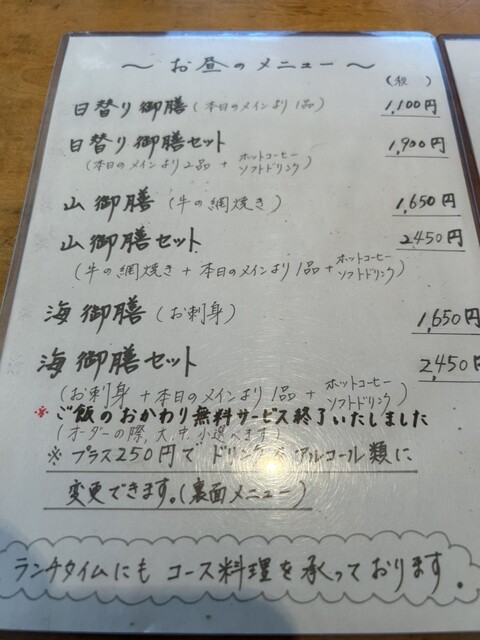 ～ お昼のメニュー ～
(税 )
日替り御膳 (本日のメインより1品) 1,100円
日替り御膳セット 1,900円
(本日のメインより2品 + ホットコーヒー ソフトドリンク)
山御膳 (牛の網焼き) 1,650円
山御膳セット 2,450円
(牛の網焼き + 本日のメインより1品 + ホットコーヒー ソフトドリンク)
海御膳 (お刺身) 1,650円
海御膳セット 2,450円
(お刺身 + 本日のメインより1品 + ホットコーヒー ソフトドリンク)
※ご飯のおかわり無料サービス終了いたしました
(オーダーの際、大、中、小選べます)
※ プラス250円で ドリンク アルコール類に
変更できます。(裏面メニュー)
ランチタイムにも コース料理を承っております。